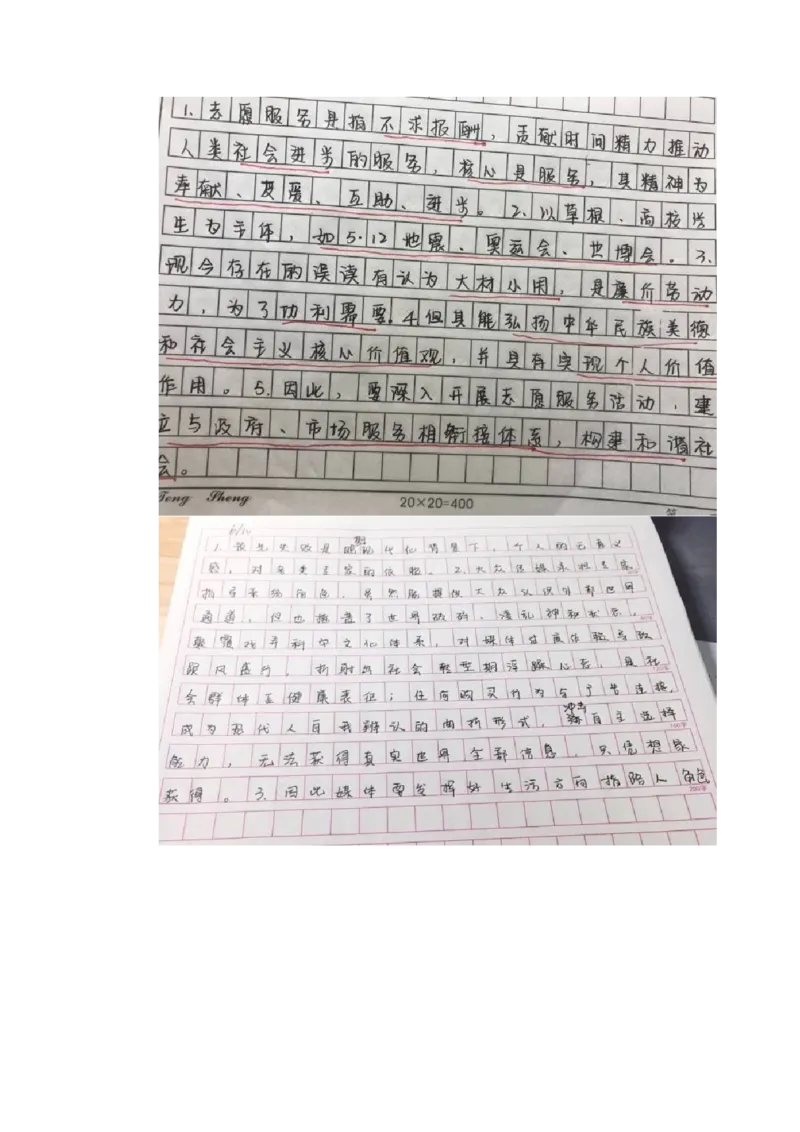 1.志愿服务是指不求报酬，贡献时间精力推动
人类社会进步的服务，核心是服务，其精神为
奉献、友爱、互助、进步。2.以草根、高校学
生为主体，如5·12地震、奥运会、世博会。3.
现今存在的误读有认为大材小用，是廉价劳动
力，为了功利需要。4.但其能弘扬中华民族美德
和社会主义核心价值观，并具有实现个人价值
作用。5.因此，要深入开展志愿服务活动，建
立与政府、市场服务相衔接体系，构建和谐社
会。
Teng Sheng
20×20=400
第
1. 是 代化背景下，个人的无意义
感，对 的依 。2.大众传媒
指 ，虽然能提供大众认识外部世界
通道，但也掩盖了世界 ，
文化体系，对媒体
跟风盛行，折射出社会转型期浮躁心态，是社
会群体亚健康表征；任何购买行为与广告连接，
成为现代人自我确认的曲折形式，冲击自主选择
能力，无法获得真实世界全部信息，只凭想象
获得。3.因此媒体要发挥好生活方向指路人角色